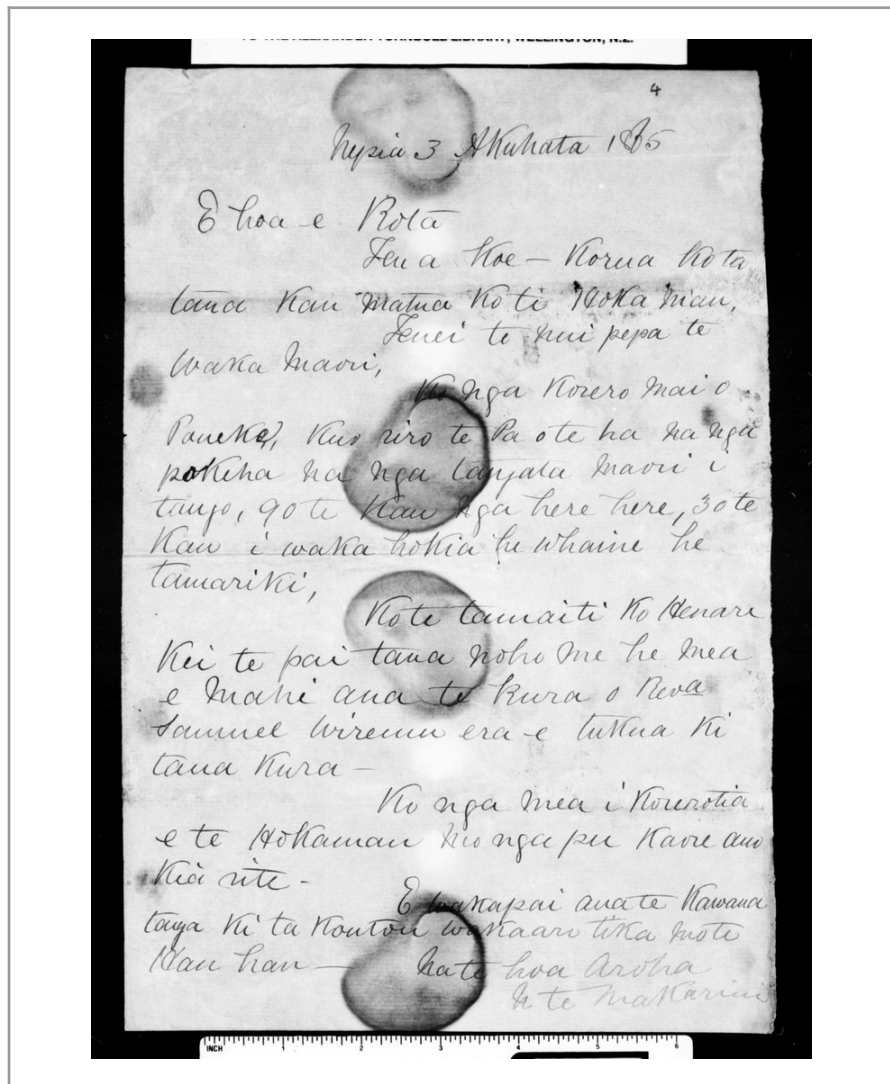 TO THE ALEXANDER TURNBULL LIBRARY, WELLINGTON, N.Z.
4
Nepia 3 Akuhata 1865
E hoa e Rota
Tena Koe — Korua Ko ta
taua Kau matua Ko ti Hoka mau,
Tenei te nui pepa te
Waka Maori,
Ko nga Korero mai o
Poneke, Kuo riro te Pa o te ha na nga
pokeha na nga tangata maori i
tango, 90 te Kau nga here here, 30 te
Kau i waka hokia he whaine he
tamariki,
Ko te tamaiti Ko Henare
Kei te pai tana noho me he mea
e mahi ana te Kura o Reva
Samuel Wiremu era e tukua ki
tana Kura —
Ko nga mea i Korerotia
e te Hokamau mo nga pu Kaore ano
Kia rite -
E wakapai ana te Kawana
tanga ki ta Koutou wakaaro tika mo te
Hau hau — Na te hoa Aroha
Na te Makarini
INCH 1 2 3 4 5 6